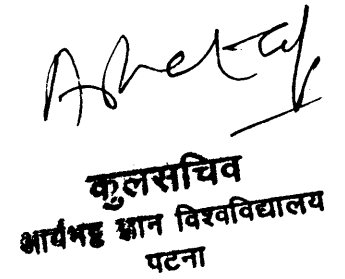 कुलसचिव
आर्यभट्ट ज्ञान विश्वविद्यालय
पटना